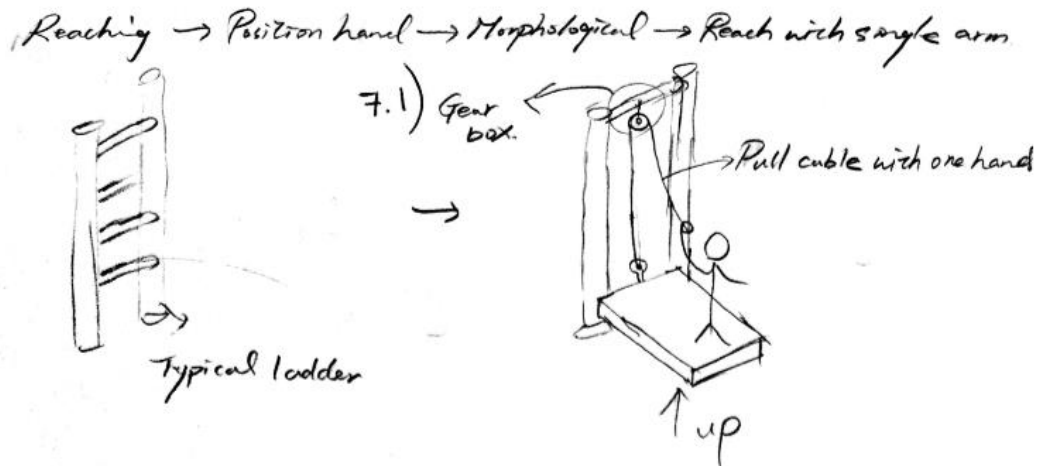 Reaching → Position hand → Morphological → Reach with single arm
7.1) Gear
box.
Pull cable with one hand
Typical ladder
up